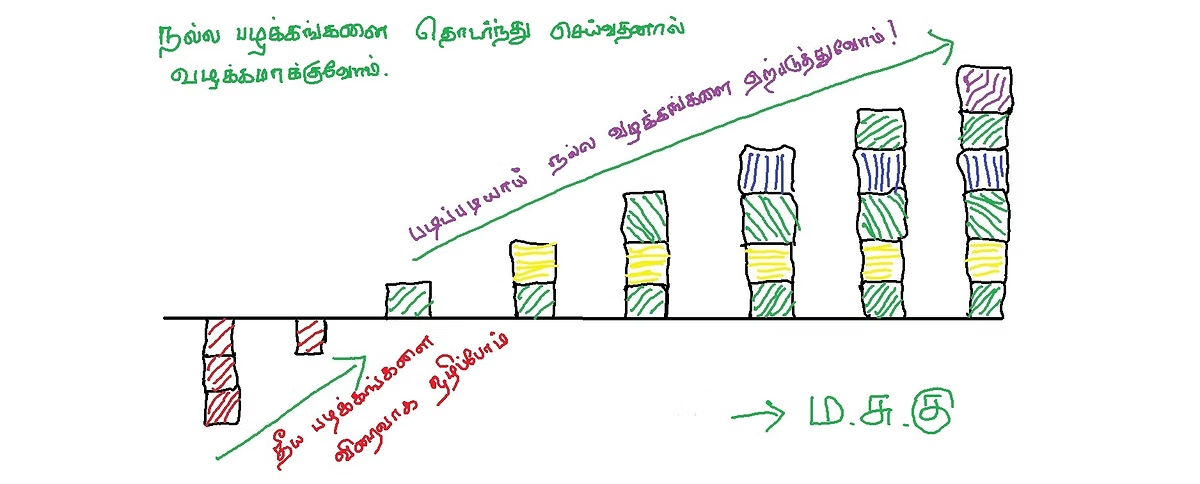 நல்ல பழக்கங்களை தொடர்ந்து செய்வதனால்
வழக்கமாக்குவோம்.
படிப்படியாய் நல்ல வழக்கங்களை ஏற்படுத்துவோம்!
தீய பழக்கங்களை
விரைவாக அழிப்போம்
ம.சு.கு